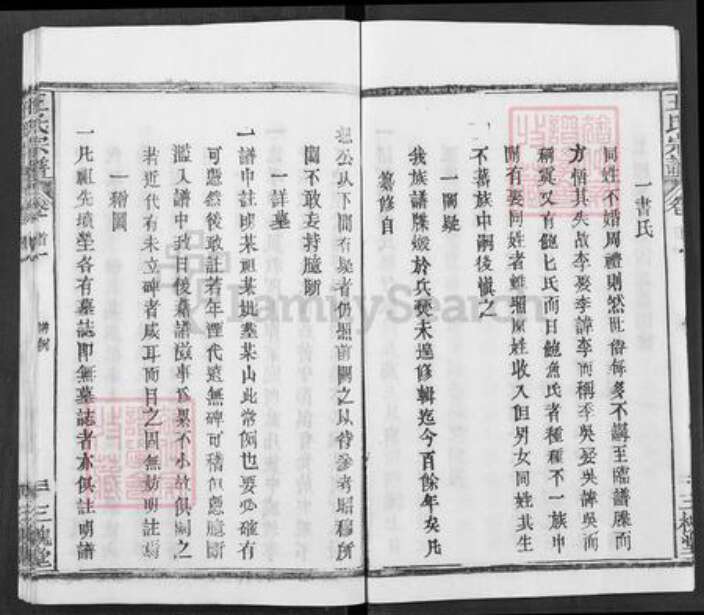 王氏宗譜 卷首
三槐堂
一書氏
同姓不婚周禮則然世俗每多不講至臨譜牒而
方悟其失故李娶李諱李而稱季吳娶吳諱吳而
稱寞又有鮑匕氏而曰鮑魚氏者種種不一族中
間有娶同姓者雖照原姓收入但男女同姓其生
不蕃族中嗣後慎之
一闕疑
我族譜牒燬於兵燹未遑修輯迄今百餘年矣凡
纂修自
公以下間有疑者仍照前闕之以待參考昭穆所
關不敢妄持臆斷
一詳墓
一譜中註明某祖某妣墓某山此常例也要必確有
可憑然後敢註若年湮代遠無碑可稽但憑臆斷
濫入譜中致日後嘉譜滋事為累不小故俱闕之
若近代有未立碑者咸耳而目之固無妨明註焉
一繪圖
一凡祖先墳塋各有墓誌即無墓誌者亦俱註明譜
王氏宗譜 卷首
三槐堂